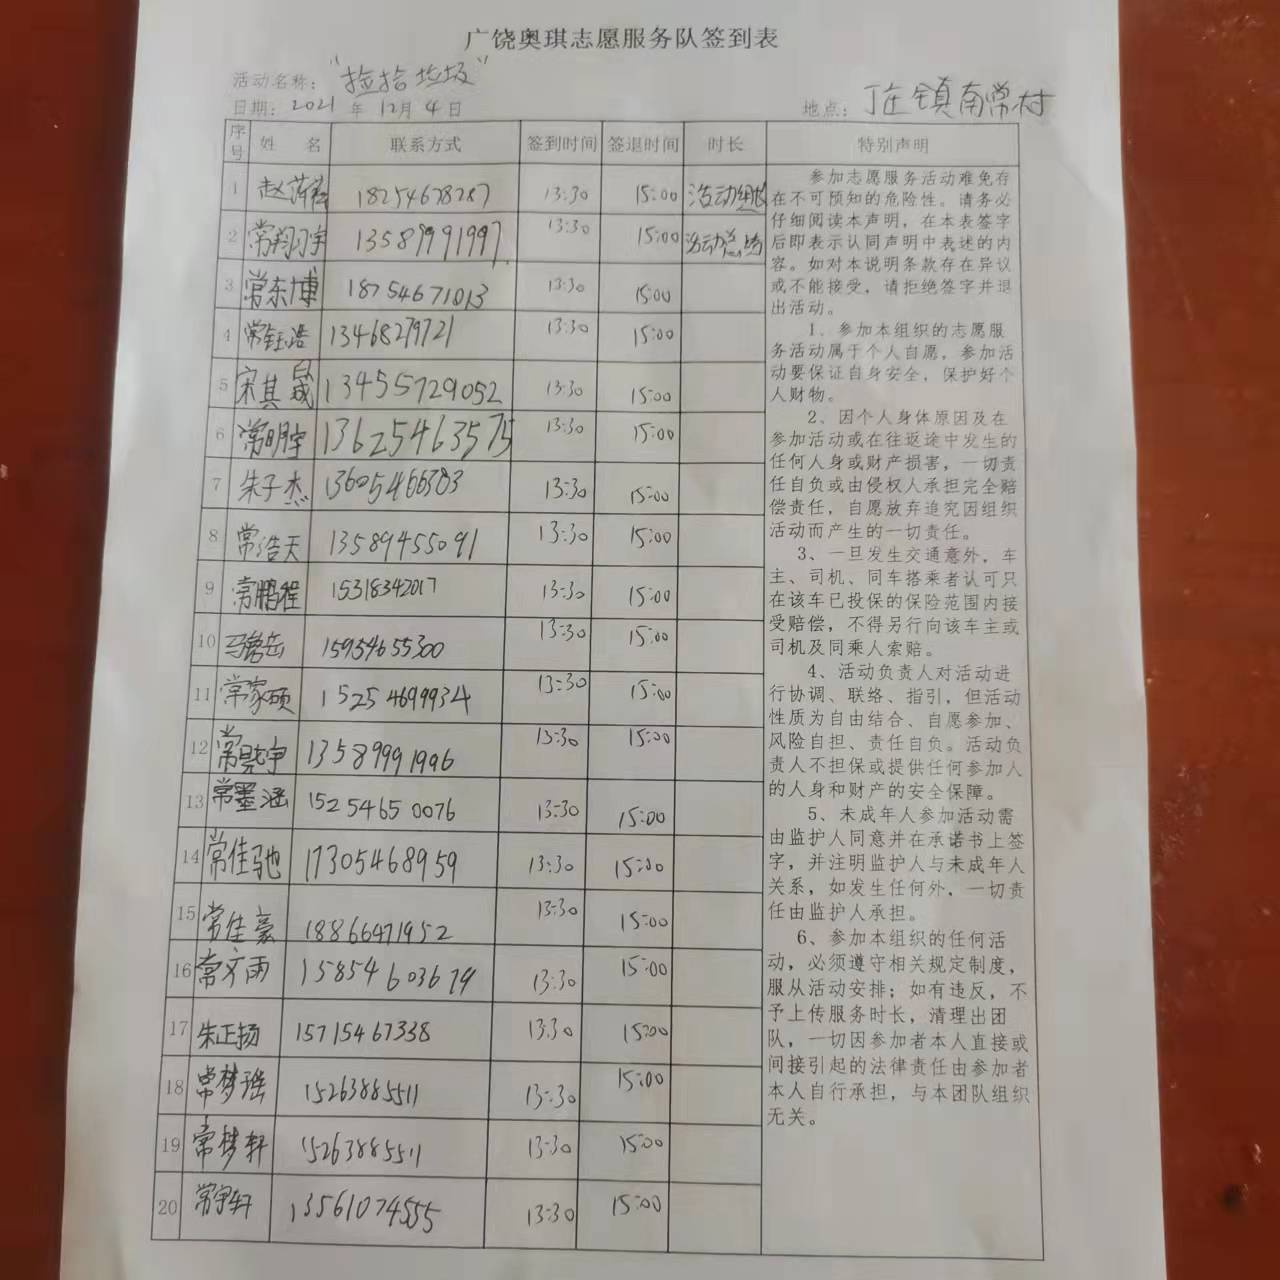 广饶奥琪志愿服务队签到表
活动名称：“捡拾垃圾”
日期：2021年12月4日 地点：丁庄镇南常村
序号 姓名 联系方式 签到时间 签退时间 时长 特别声明
1 赵萍 18254678287 13:30 15:00 活动组织
2 常翔宇 13589991997 13:30 15:00 活动总
3 常东博 18754671013 13:30 15:00
4 常钰浩 13468279721 13:30 15:00
5 宋其晟 13455729052 13:30 15:00
6 常明宇 13625463575 13:30 15:00
7 朱子杰 13605466383 13:30 15:00
8 常浩天 13589455091 13:30 15:00
9 常鹏程 15318342017 13:30 15:00
10 马岳 15954655300 13:30 15:00
11 常家硕 15254699934 13:30 15:00
12 常宇 13589991996 13:30 15:00
13 常墨涵 15254650076 13:30 15:00
14 常佳驰 17305468959 13:30 15:00
15 常佳豪 18866471952 13:30 15:00
16 常文雨 15854603679 13:30 15:00
17 朱正扬 15715467338 13:30 15:00
18 常梦瑶 15263885511 13:30 15:00
19 常梦轩 15263885511 13:30 15:00
20 常宇轩 13561074555 13:30 15:00
参加志愿服务活动难免存
在不可预知的危险性。请务必
仔细阅读本声明，在本表签字
后即表示认同声明中表述的内
容。如对本说明条款存在异议
或不能接受，请拒绝签字并退
出活动。
1、参加本组织的志愿服
务活动属于个人自愿，参加活
动要保证自身安全，保护好个
人财物。
2、因个人身体原因及在
参加活动或在往返途中发生的
任何人身或财产损害，一切责
任自负或由侵权人承担完全赔
偿责任，自愿放弃追究因组织
活动而产生的一切责任。
3、一旦发生交通意外，车
主、司机、同车搭乘者认可只
在该车已投保的保险范围内接
受赔偿，不得另行向该车主或
司机及同乘人索赔。
4、活动负责人对活动进
行协调、联络、指引，但活动
性质为自由结合、自愿参加、
风险自担、责任自负。活动负
责人不担保或提供任何参加人
的人身和财产的安全保障。
5、未成年人参加活动需
由监护人同意并在承诺书上签
字，并注明监护人与未成年人
关系，如发生任何外，一切责
任由监护人承担。
6、参加本组织的任何活
动，必须遵守相关规定制度，
服从活动安排；如有违反，不
予上传服务时长，清理出团
队，一切因参加者本人直接或
间接引起的法律责任由参加者
本人自行承担，与本团队组织
无关。